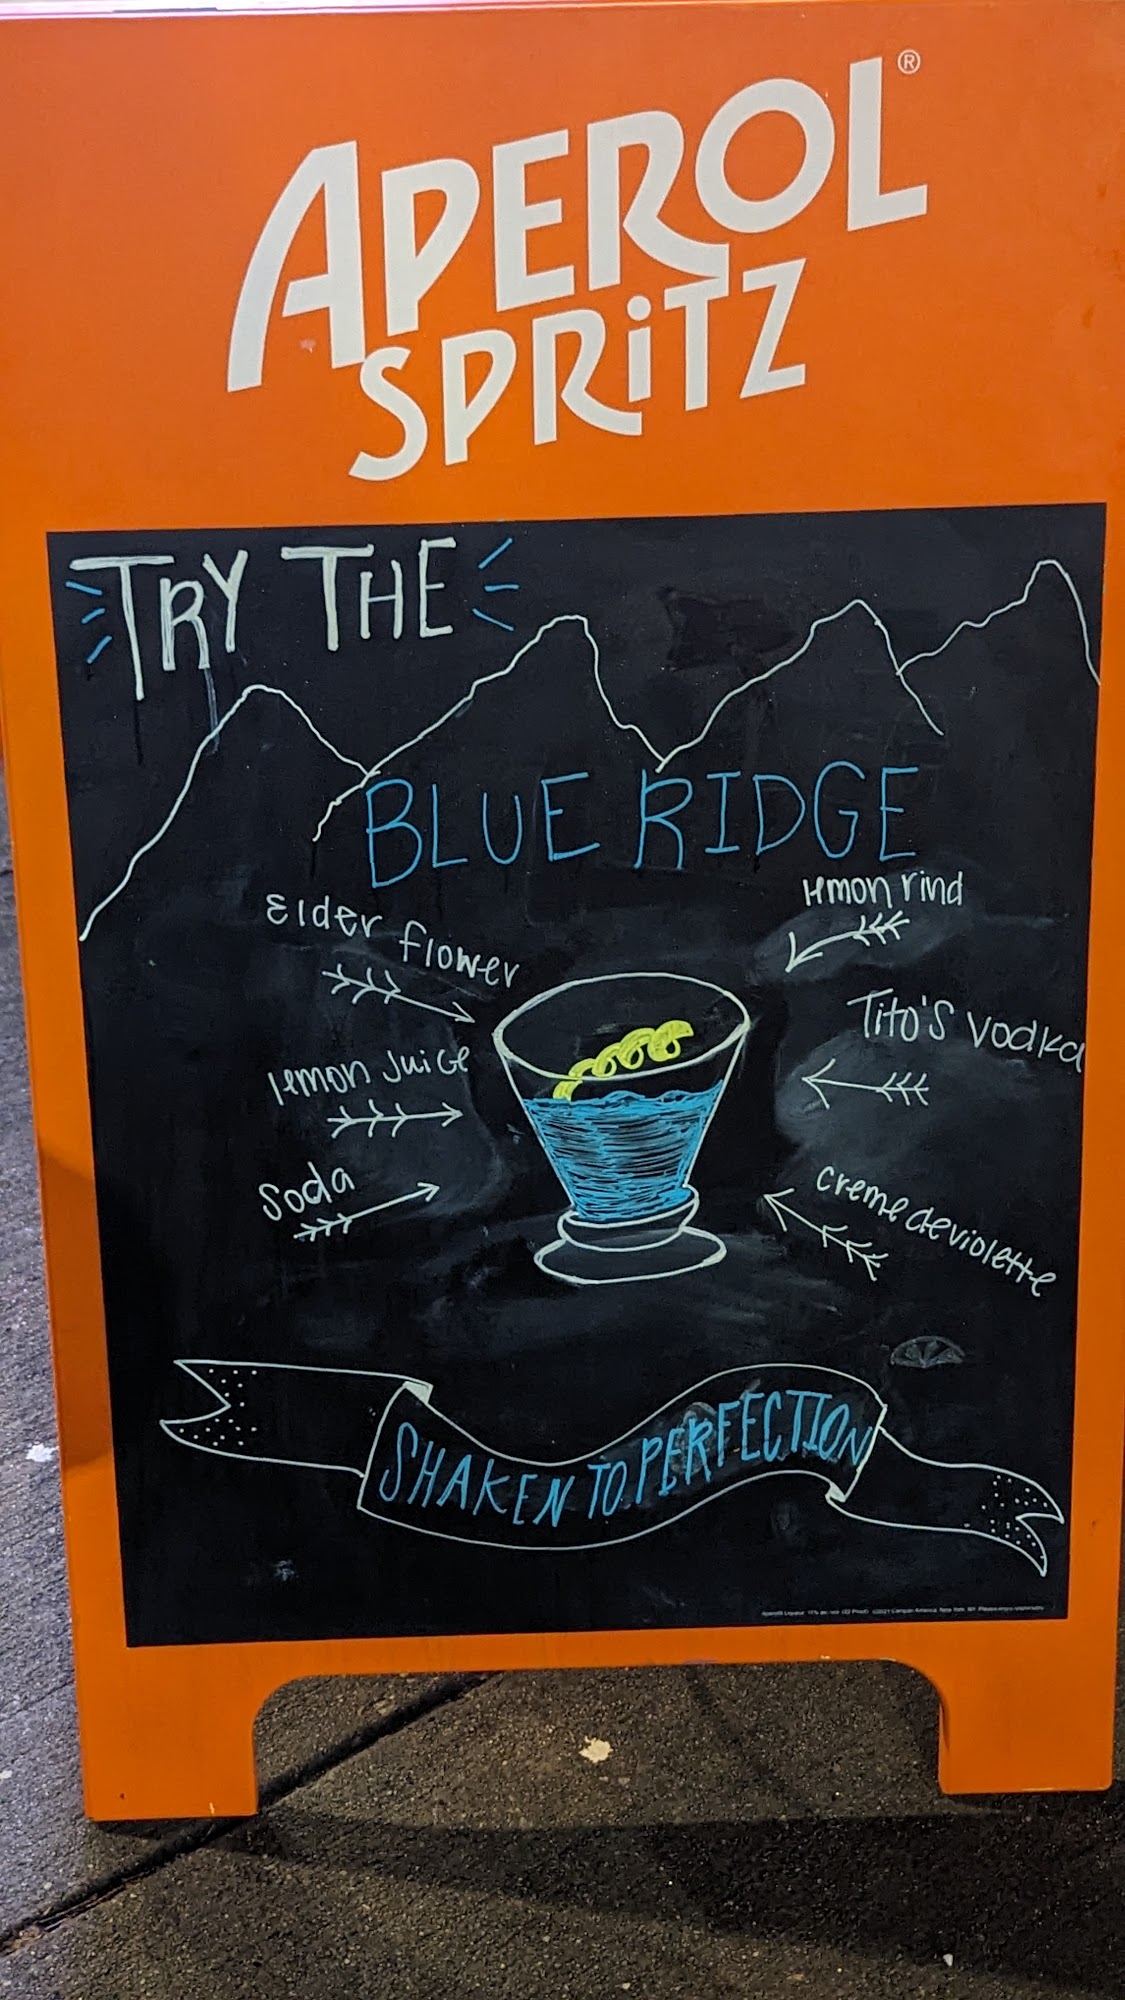 APEROL®
SPRiTZ
TRY THE
BLUE RIDGE
Elder flower
lemon juice
Soda
lemon rind
Tito's vodka
creme de violette
SHAKEN TO PERFECTION